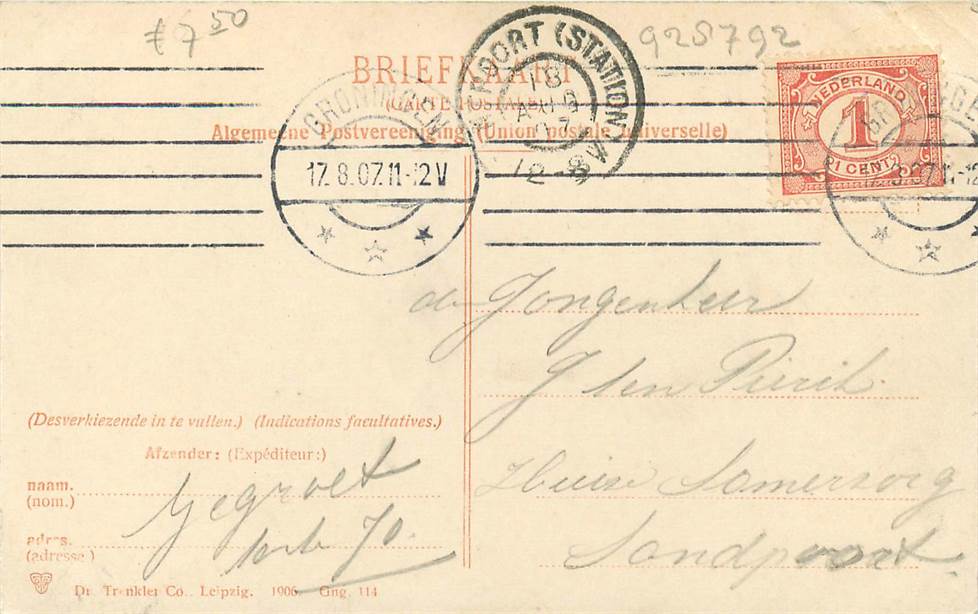 £ 7 50
928792
BRIEFKAART
(CARTE POSTALE)
Algemeene Postvereeniging (Union postale universelle)
GRONINGEN
17. 8. 07. 11-12 V
POORT (STATION)
18
AUG
07
12-8V
NEDERLAND
1
1 CENT
GR
de Jongenheer
J ten
Huize Somerzorg
Sandpoort.
(Desverkiezende in te vullen.) (Indications facultatives.)
Afzender: (Expéditeur:)
naam.
(nom.)
Gegroet
adres.
(adresse)
Jo.
Dr. Trenkler Co., Leipzig. 1906 Gng. 114